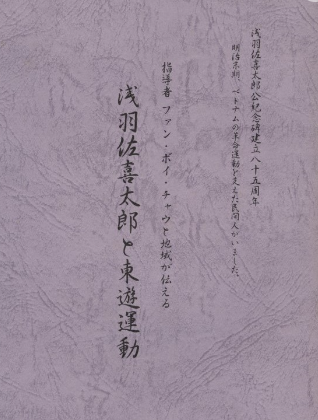 浅羽佐喜太郎公紀念碑建立八十五周年
明治末期、ベトナムの革命運動を支えた民間人がいました。
指導者 ファン・ボイ・チャウと地域が伝える
浅羽佐喜太郎と東遊運動